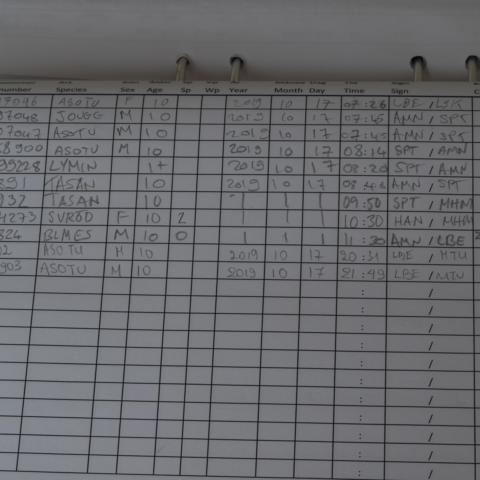 number Species Sex Age Sp Wp Year Month Day Time Sign
97046 ASOTU F 10 2019 10 17 07:26 LBE / LSK
97048 JOUGG M 10 2019 10 17 07:45 AMN / SPT
97047 ASOTU M 10 2019 10 17 07:45 AMN / SPT
68900 ASOTU M 10 2019 10 17 08:14 SPT / AMN
99228 LYMIN 1+ 2019 10 17 08:20 SPT / AMN
891 TASAN 10 2019 10 17 AMN / SPT
232 TASAN 10 | | | 09:50 SPT / MHM
4273 SVROD F 10 2 | | | 10:30 HAN / MHM
824 BLMES M 10 0 | | | 11:20 AMN / LBE
02 ASOTU M 10 2019 10 17 20:31 LBE / MTU
903 ASOTU M 10 2019 10 17 21:49 LBE / MTU
: /
: /
: /
: /
: /
: /
: /
: /
: /
: /
: /